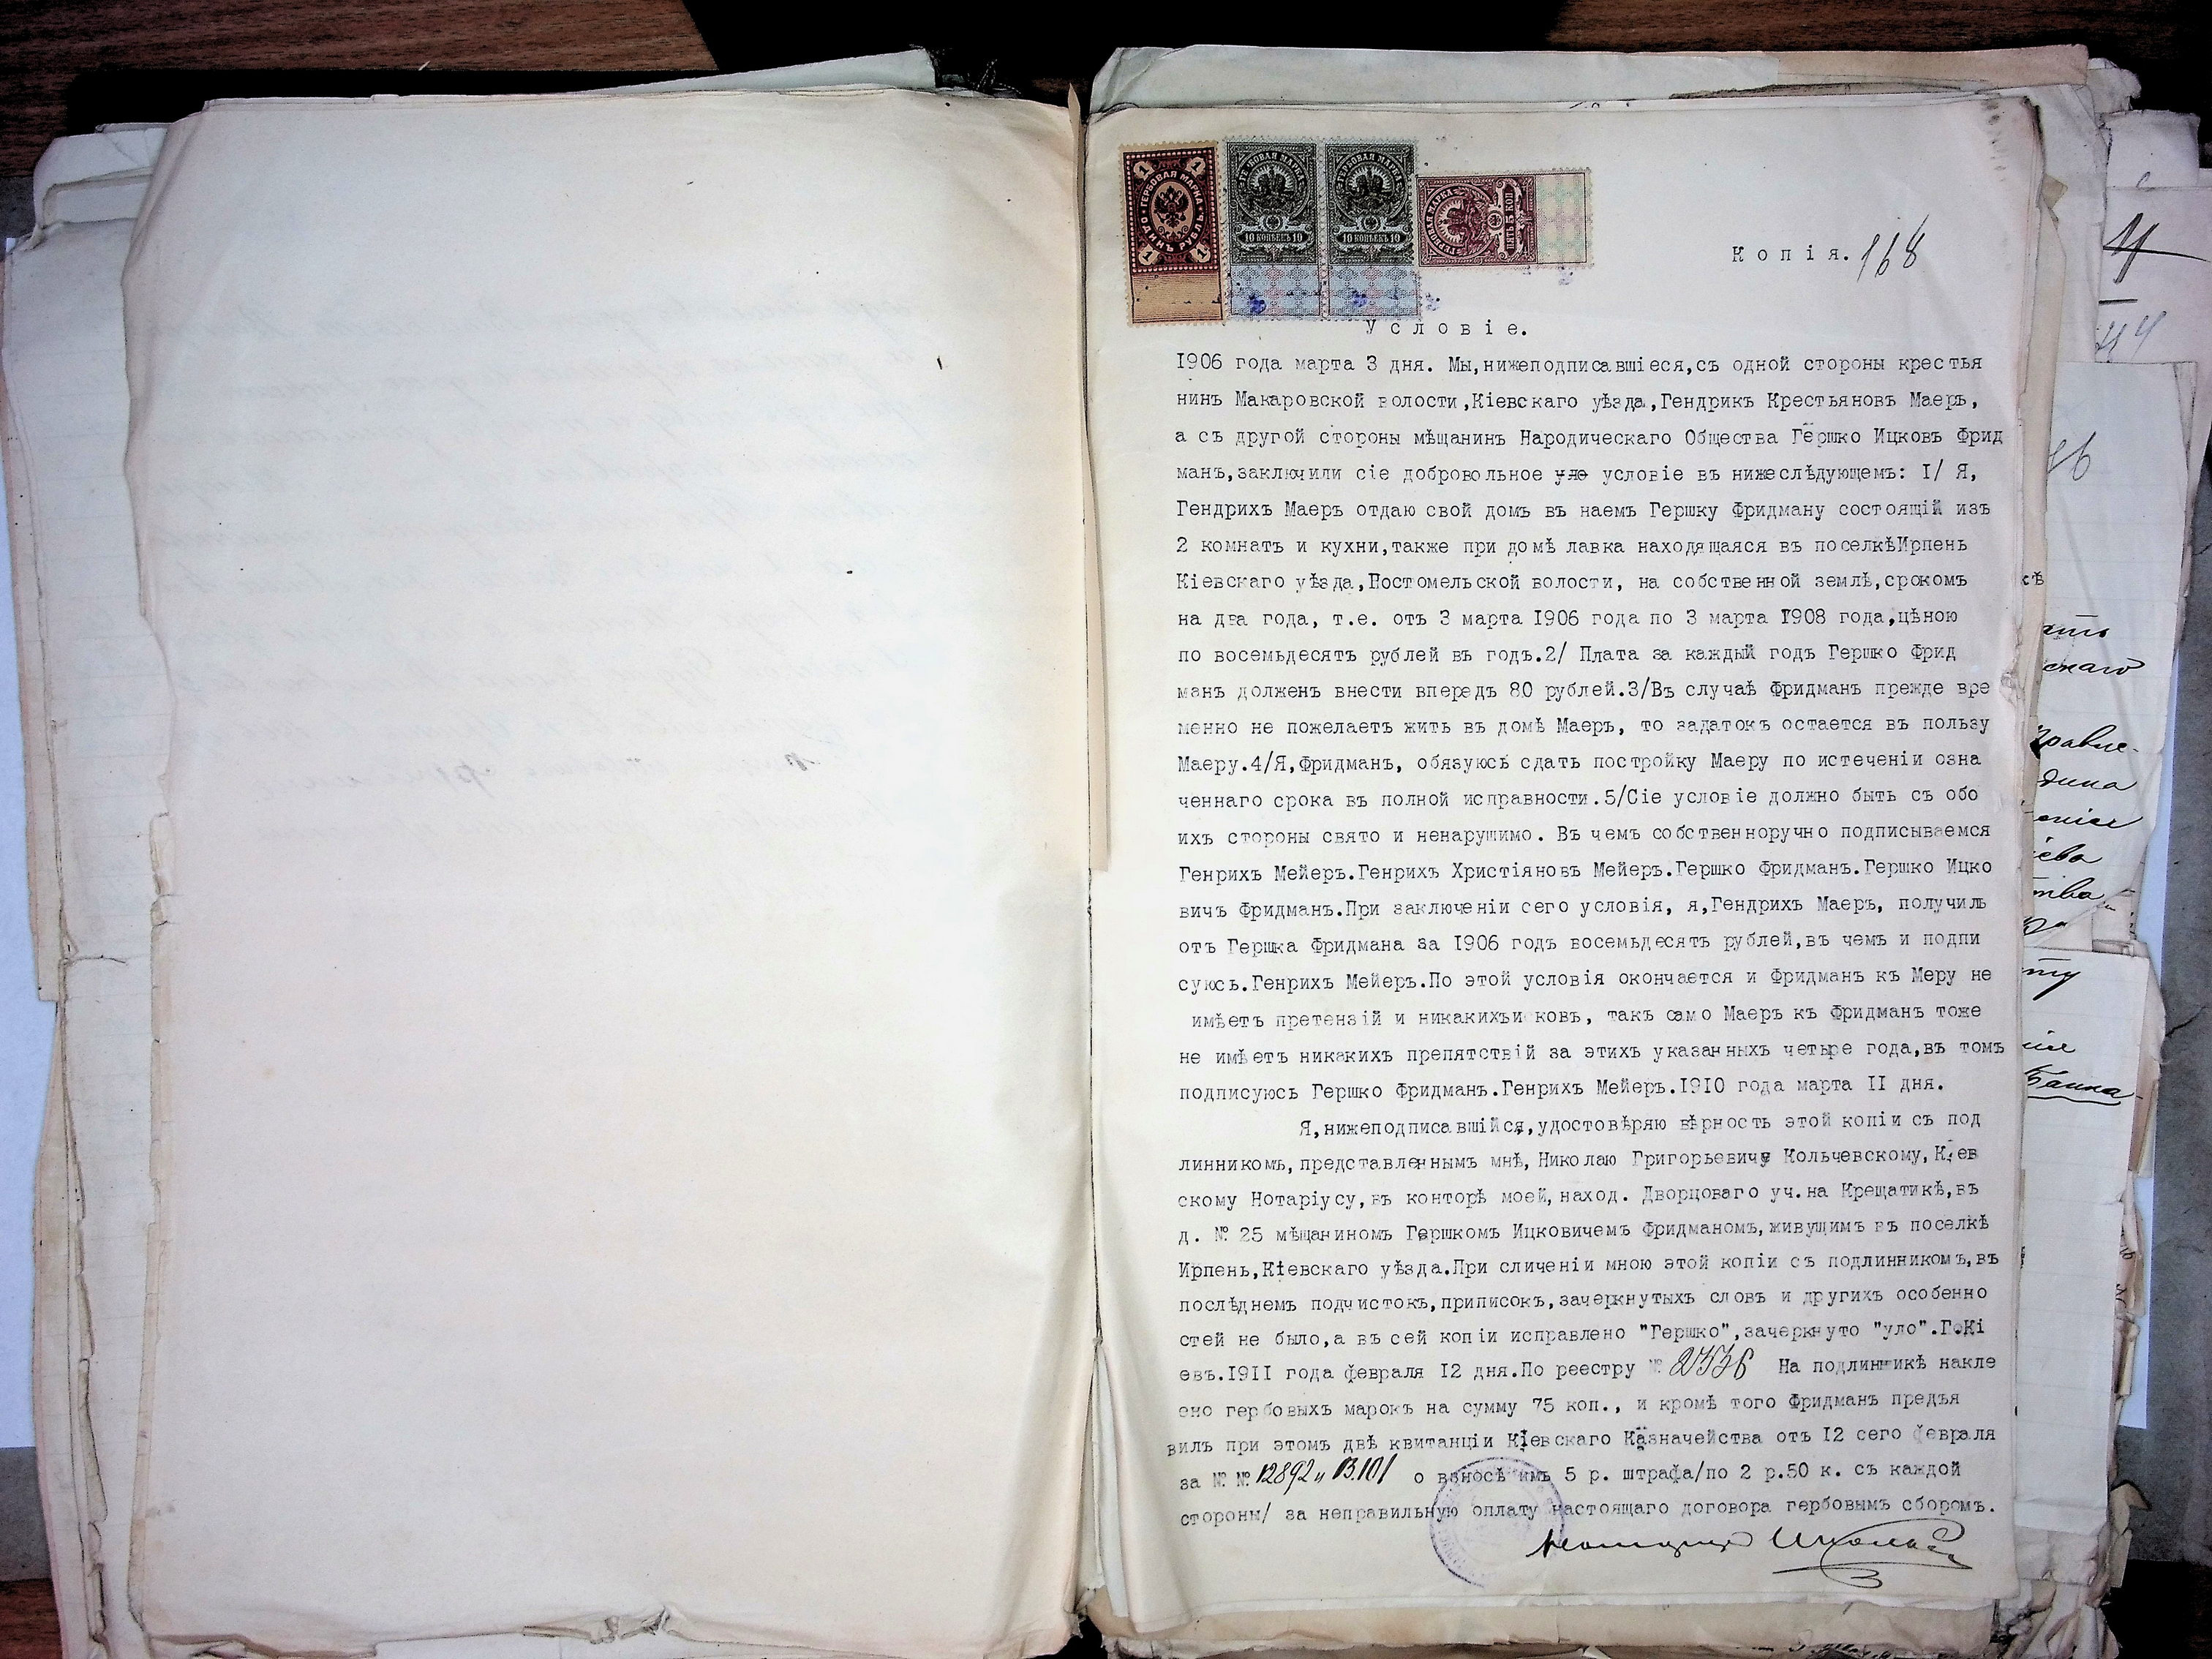 1 ГЕРБОВАЯ МАРКА 1
ОДИНЪ РУБЛЬ
ГЕРБОВАЯ МАРКА
10 КОПѢЕКЪ 10
ГЕРБОВАЯ МАРКА
10 КОПѢЕКЪ 10
ГЕРБОВАЯ МАРКА
ПЯТЬ 5 КОП
Копія. 168
Условіе.
1906 года марта 3 дня. Мы,нижеподписавшіеся,съ одной стороны крестья
нинъ Макаровской волости,Кіевскаго уѣзда,Гендрикъ Крестьяновъ Маеръ,
а съ другой стороны мѣщанинъ Народическаго Общества Гершко Ицковъ Фрид
манъ,заключили сіе добровольное уло условіе въ нижеслѣдующемъ: I/ Я,
Гендрихъ Маеръ отдаю свой домъ въ наемъ Гершку Фридману состоящій изъ
2 комнатъ и кухни,также при домѣ лавка находящаяся въ поселкѣИрпень
Кіевскаго уѣзда,Гостомельской волости, на собственной землѣ,срокомъ
на два года, т.е. отъ 3 марта 1906 года по 3 марта 1908 года,цѣною
по восемьдесятъ рублей въ годъ.2/ Плата за каждый годъ Гершко Фрид
манъ долженъ внести впередъ 80 рублей.3/Въ случаѣ Фридманъ прежде вре
менно не пожелаетъ жить въ домѣ Маеръ, то задатокъ остается въ пользу
Маеру.4/Я,Фридманъ, обязуюсь сдать постройку Маеру по истеченіи озна
ченнаго срока въ полной исправности.5/Сіе условіе должно быть съ обо
ихъ стороны свято и ненарушимо. Въ чемъ собственноручно подписываемся
Генрихъ Мейеръ.Генрихъ Христіяновъ Мейеръ.Гершко Фридманъ.Гершко Ицко
вичъ Фридманъ.При заключеніи сего условія, я,Гендрихъ Маеръ, получилъ
отъ Гершка Фридмана за 1906 годъ восемьдесятъ рублей,въ чемъ и подпи
суюсь.Генрихъ Мейеръ.По этой условія окончается и Фридманъ къ Меру не
имѣетъ претензій и никакихъисковъ, такъ само Маеръ къ Фридманъ тоже
не имѣетъ никакихъ препятствій за этихъ указанныхъ четыре года,въ томъ
подписуюсь Гершко Фридманъ.Генрихъ Мейеръ.1910 года марта II дня.
Я,нижеподписавшійся,удостовѣряю вѣрность этой копіи съ под
линникомъ,представленнымъ мнѣ, Николаю Григорьевичу Кольчевскому,Кіев
скому Нотаріусу,въ конторѣ моей,наход. Дворцоваго уч.на Крещатикѣ,въ
д. № 25 мѣщаниномъ Гершкомъ Ицковичемъ Фридманомъ,живущимъ въ поселкѣ
Ирпень,Кіевскаго уѣзда.При сличеніи мною этой копіи съ подлинникомъ,въ
послѣднемъ подчистокъ,приписокъ,зачеркнутыхъ словъ и другихъ особенно
стей не было,а въ сей копіи исправлено "Гершко",зачеркнуто "уло".Г.Кі
евъ.1911 года февраля 12 дня.По реестру № 2536 На подлинникѣ накле
ено гербовыхъ марокъ на сумму 75 коп., и кромѣ того Фридманъ предъя
вилъ при этомъ двѣ квитанціи Кіевскаго Казначейства отъ 12 сего февраля
за № № 12892 и 13.101 о взносѣ имъ 5 р. штрафа/по 2 р.50 к. съ каждой
стороны/ за неправильную оплату настоящаго договора гербовымъ сборомъ.